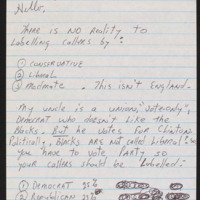 Hello,
THERE IS NO REALITY TO
LABELLING CALLERS BY:
① CONSERVATIVE
② LIBERAL
③ MODERATE. THIS ISN'T ENGLAND.
MY UNCLE IS A UNION, "VOTE-ONLY",
DEMOCRAT WHO DOESN'T LIKE THE
Blacks. BUT HE VOTES FOR CLINTON
POLITICALLY, BLACKS ARE NOT CALLED LIBERAL!
YOU HAVE TO VOTE PARTY SO
YOUR CALLERS SHOULD BE LABELLED:
① DEMOCRAT
② REPUBLICAN